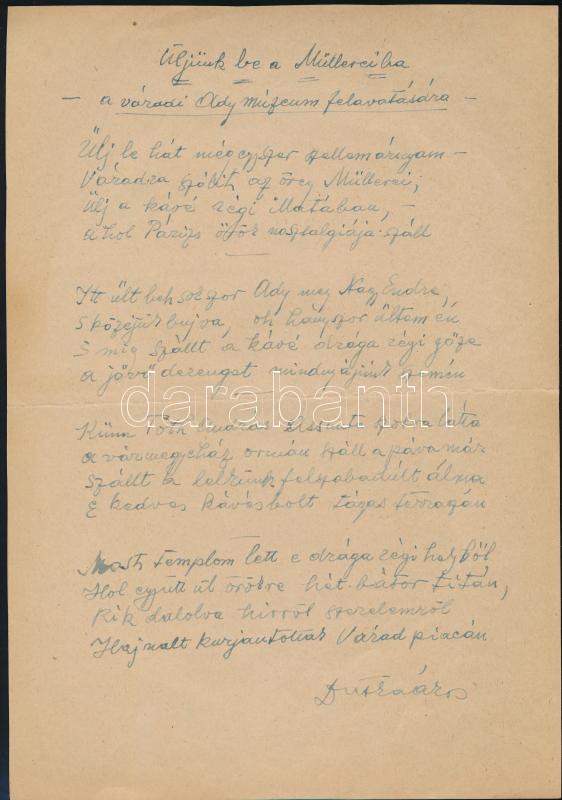 Üljünk be a Müllereiba
- a váradi Ady múzeum felavatására -
Ülj le hát mégegyszer szellemárnyam -
Váradra szólít az öreg Müllerei,
Ülj a kávé régi illatában, -
ahol Párizs örök nosztalgiája száll
Itt ült be sokszor Ady meg Nagy Endre,
S közéjük bujva, oh hányszor ültem én
S míg szállt a kávé drága régi gőze
a jövő derengett mindnyájunk szemén
Künn Tóth
a vármegyeház ormán száll a páva már
Szállt a lelkünk felszabadúlt álma
E kedves kávésbolt tágas terraszán
darabanth
Most templom lett e drága régi helyből
Hol együtt ül örökre hét bátor titán,
Kik dalolva hirről szerelemről
Hajnalt kurjantottak Várad piacán